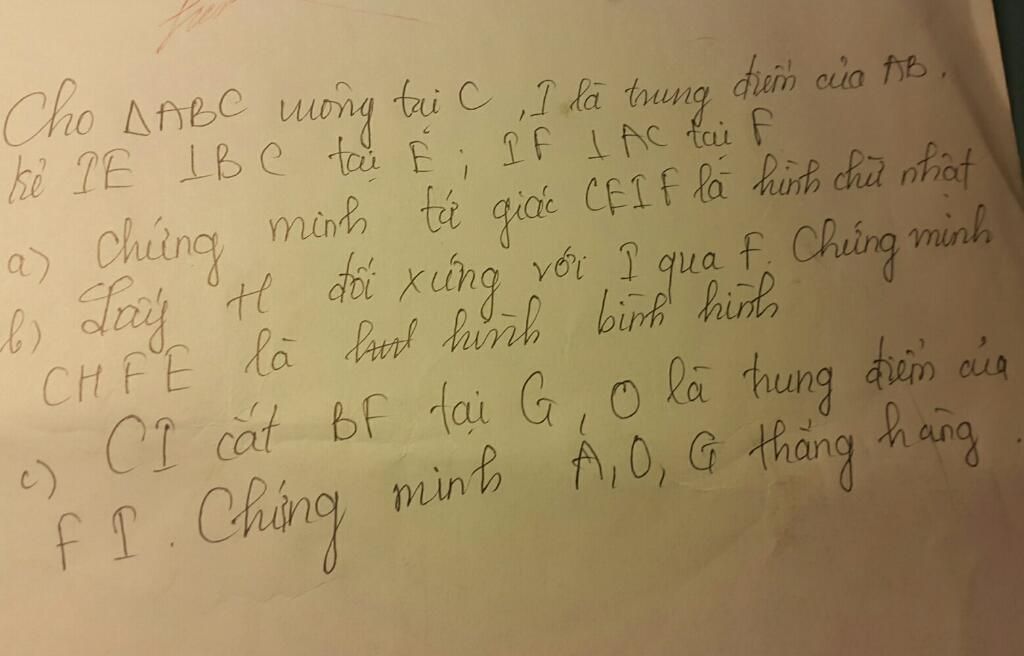 Cho ΔABC vuông tại C, I là trung điểm của AB.
kẻ IE ⊥BC tại E; IF ⊥AC tại F
a) chứng minh tứ giác CEIF là hình chữ nhật
b) Lấy H đối xứng với I qua F. Chứng minh
CHFE là hình bình hình
c) CI cắt BF tại G, O là trung điểm của
FI. Chứng minh A, O, G thẳng hàng.